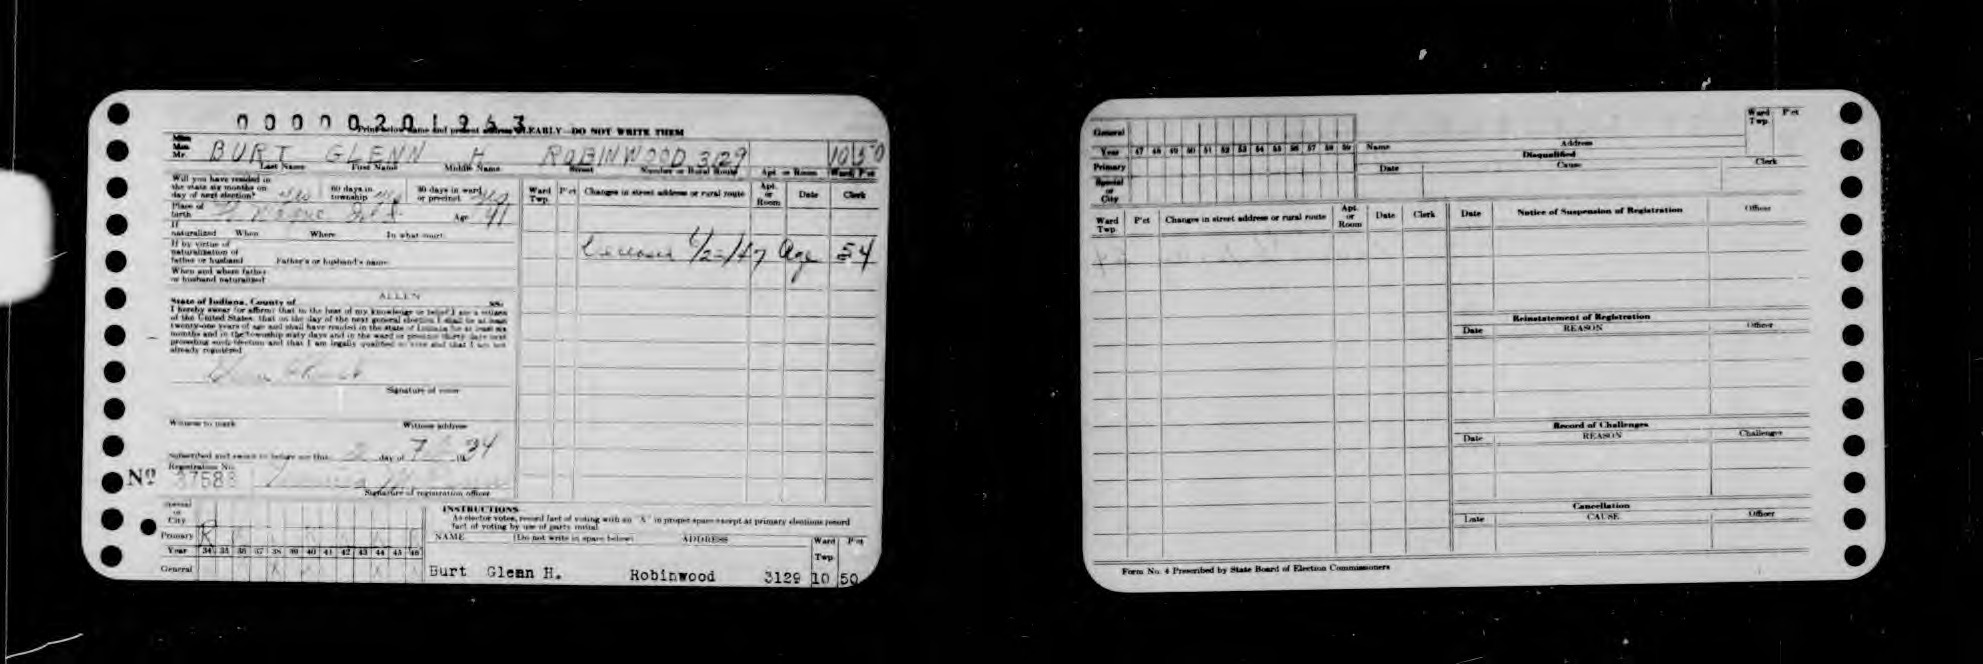 00000201963
Print below name and present address CLEARLY—DO NOT WRITE THEM
Miss
Mrs.
Mr. BURT GLENN H ROBINWOOD 3129 10 50
Last Name First Name Middle Name Street Number or Rural Route Apt. or Room Ward P'ct
Will you have resided in
the state six months on
day of next election? yes 60 days in township yes 30 days in ward or precinct yes
Place of
birth Ft Wayne Ind Age 41
If
naturalized When Where In what court
If by virtue of
naturalization of
father or husband Father's or husband's name
When and where father
or husband naturalized
State of Indiana, County of ALLEN ss:
I hereby swear (or affirm) that to the best of my knowledge or belief I am a citizen
of the United States, that on the day of the next general election I shall be at least
twenty-one years of age and shall have resided in the state of Indiana for at least six
months and in the township sixty days and in the ward or precinct thirty days next
preceding such election and that I am legally qualified to vote and that I am not
already registered
Signature of voter
Witness to mark Witness address
Subscribed and sworn to before me this day of 7 1934
Registration No.
No 37583
Signature of registration officer
Ward Twp. P'ct Changes in street address or rural route Apt. or Room Date Clerk
Deceased 6/22/47 Age 54
Special
or
City
Primary R
Year 34 35 36 37 38 39 40 41 42 43 44 45 46
General
INSTRUCTIONS
As elector votes, record fact of voting with an "X" in proper space except at primary elections record
fact of voting by use of party initial
NAME (Do not write in space below) ADDRESS Ward Twp. P'ct
Burt Glenn H. Robinwood 3129 10 50
General
Year 47 48 49 50 51 52 53 54 55 56 57 58 59
Primary
Special
or
City
Name Address Ward Twp. P'ct
Disqualified
Date Cause Clerk
Ward Twp. P'ct Changes in street address or rural route Apt. or Room Date Clerk
Date Notice of Suspension of Registration Officer
Reinstatement of Registration
Date REASON Officer
Record of Challenges
Date REASON Challenger
Cancellation
Date CAUSE Officer
Form No. 4 Prescribed by State Board of Election Commissioners